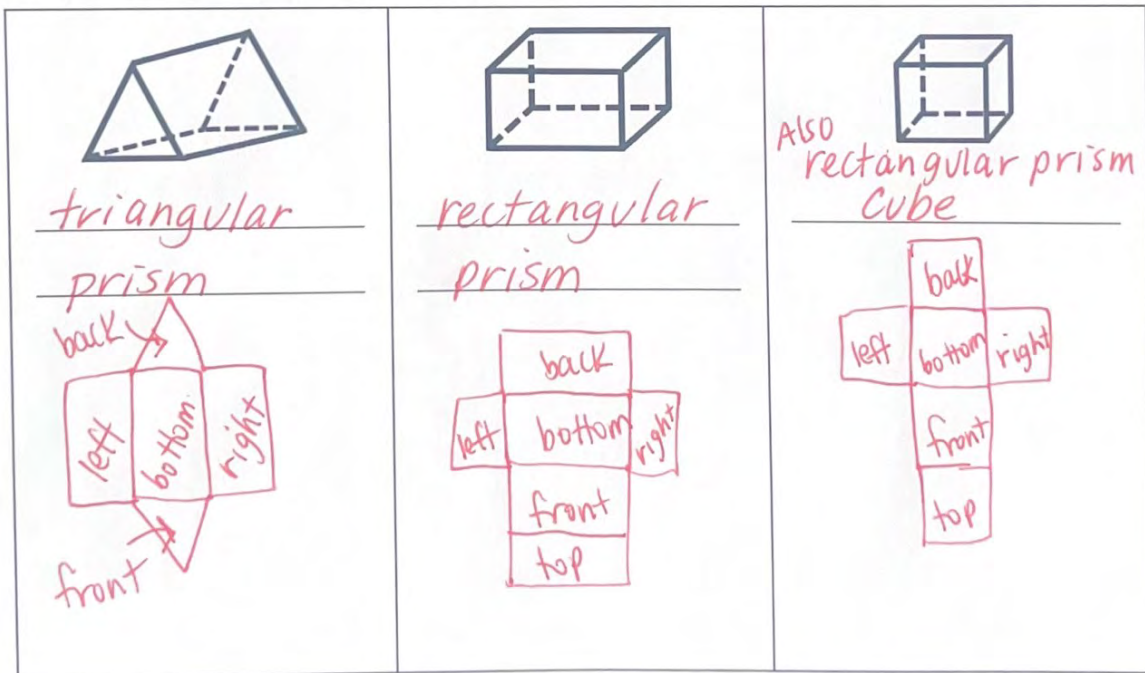 triangular
prism
back
left
bottom
right
front
rectangular
prism
back
left
bottom
right
front
top
Also
rectangular prism
Cube
back
left
bottom
right
front
top